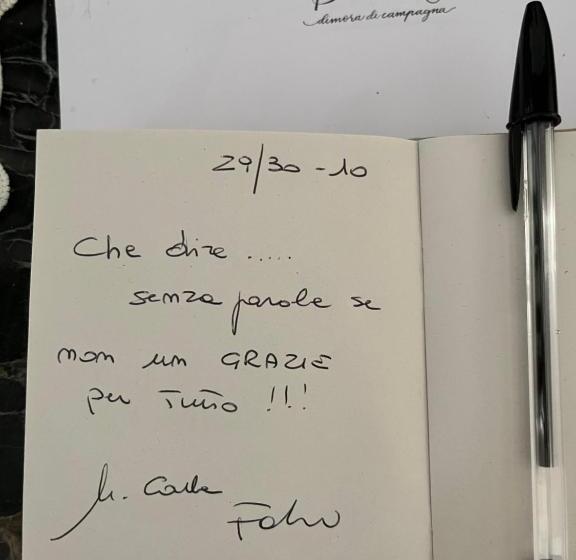 dimora di campagna
29/30 - 10
Che dire .....
senza parole se
non un GRAZIE
per Tutto !!!
M. Carla